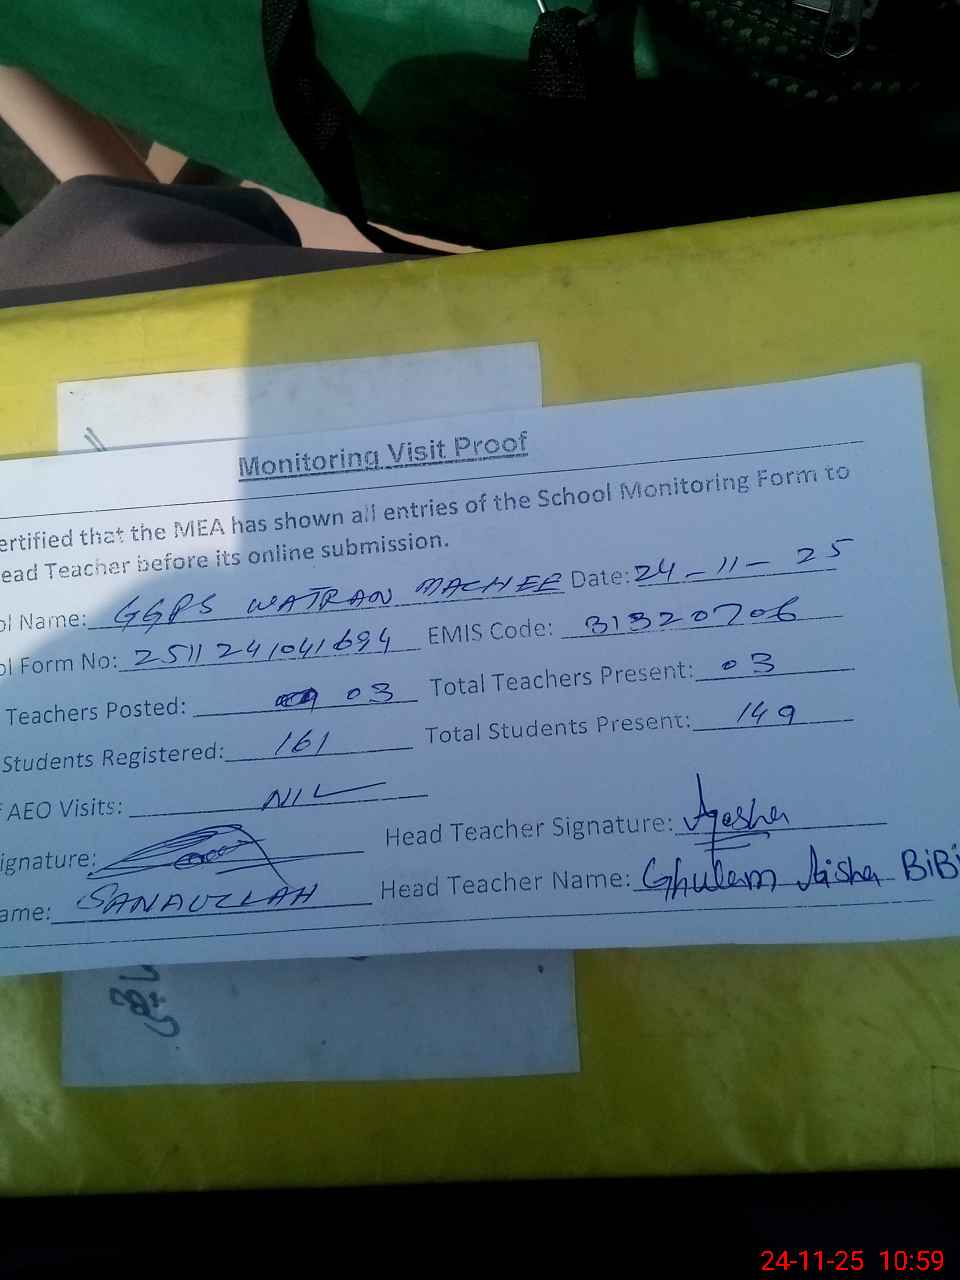 Monitoring Visit Proof
ertified that the MEA has shown all entries of the School Monitoring Form to
ead Teacher before its online submission.
ol Name: GGPS WATRAN MACHEE Date: 24-11-25
ol Form No: 2511241041694 EMIS Code: 31320706
Teachers Posted: 03 Total Teachers Present: 03
Students Registered: 161 Total Students Present: 149
AEO Visits: NIL
ignature: Head Teacher Signature: Ayesha
ame: SANAULLAH Head Teacher Name: Ghulam Aisha BiBi
24-11-25 10:59